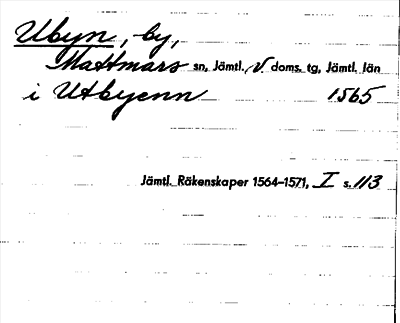 Ubyn, by,
Mattmars sn, Jämtl. V. doms. tg, Jämtl. län
i Utbyenn 1565
Jämtl. Räkenskaper 1564–1571, I s. 113